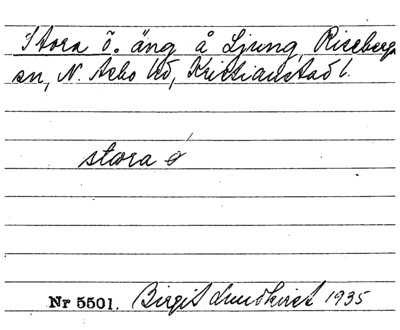 Stora ö. äng å Ljung, Riseberga
sn, N. Åsbo hd, Kristianstad l.
stora ø
Nr 5501. Birgit Lundkvist 1935